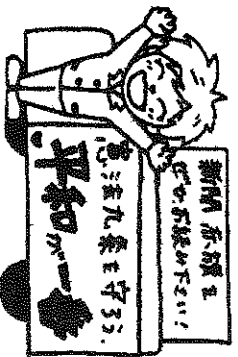 新聞赤旗を
ぜひお読み下さい!
憲法九条を守ろう.
平和が一